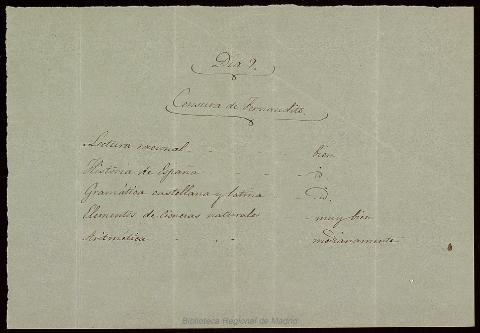 Día 9.
Censura de Fernandito.
Lectura racional - - - bien
Historia de España - - - id
Gramática castellana y latina - id.
Elementos de ciencias naturales - muy bien
Aritmética - - - medianamente
Biblioteca Regional de Madrid